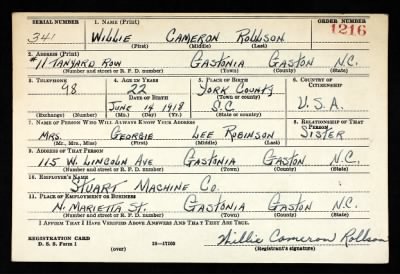 SERIAL NUMBER 1. NAME (Print) ORDER NUMBER
341 WILLIE CAMERON ROLLISON 1216
(First) (Middle) (Last)
2. ADDRESS (Print)
#11 TANYARD ROW GASTONIA GASTON N.C.
(Number and street or R. F. D. number) (Town) (County) (State)
3. TELEPHONE 4. AGE IN YEARS 5. PLACE OF BIRTH 6. COUNTRY OF CITIZENSHIP
98 22 YORK COUNTY
DATE OF BIRTH (Town or county)
JUNE 14 1918 S.C. U.S.A.
(Exchange) (Number) (Mo.) (Day) (Yr.) (State or country)
7. NAME OF PERSON WHO WILL ALWAYS KNOW YOUR ADDRESS 8. RELATIONSHIP OF THAT PERSON
MRS. GEORGIE LEE ROBINSON SISTER
(Mr., Mrs., Miss) (First) (Middle) (Last)
9. ADDRESS OF THAT PERSON
115 W. LINCOLN AVE GASTONIA GASTON N.C.
(Number and street or R. F. D. number) (Town) (County) (State)
10. EMPLOYER'S NAME
STUART MACHINE CO.
11. PLACE OF EMPLOYMENT OR BUSINESS
N. MARIETTA ST. GASTONIA GASTON N.C.
(Number and street or R. F. D. number) (Town) (County) (State)
I AFFIRM THAT I HAVE VERIFIED ABOVE ANSWERS AND THAT THEY ARE TRUE.
REGISTRATION CARD
D. S. S. Form 1 (over) 16—17105 Willie Cameron Rollison
(Registrant's signature)